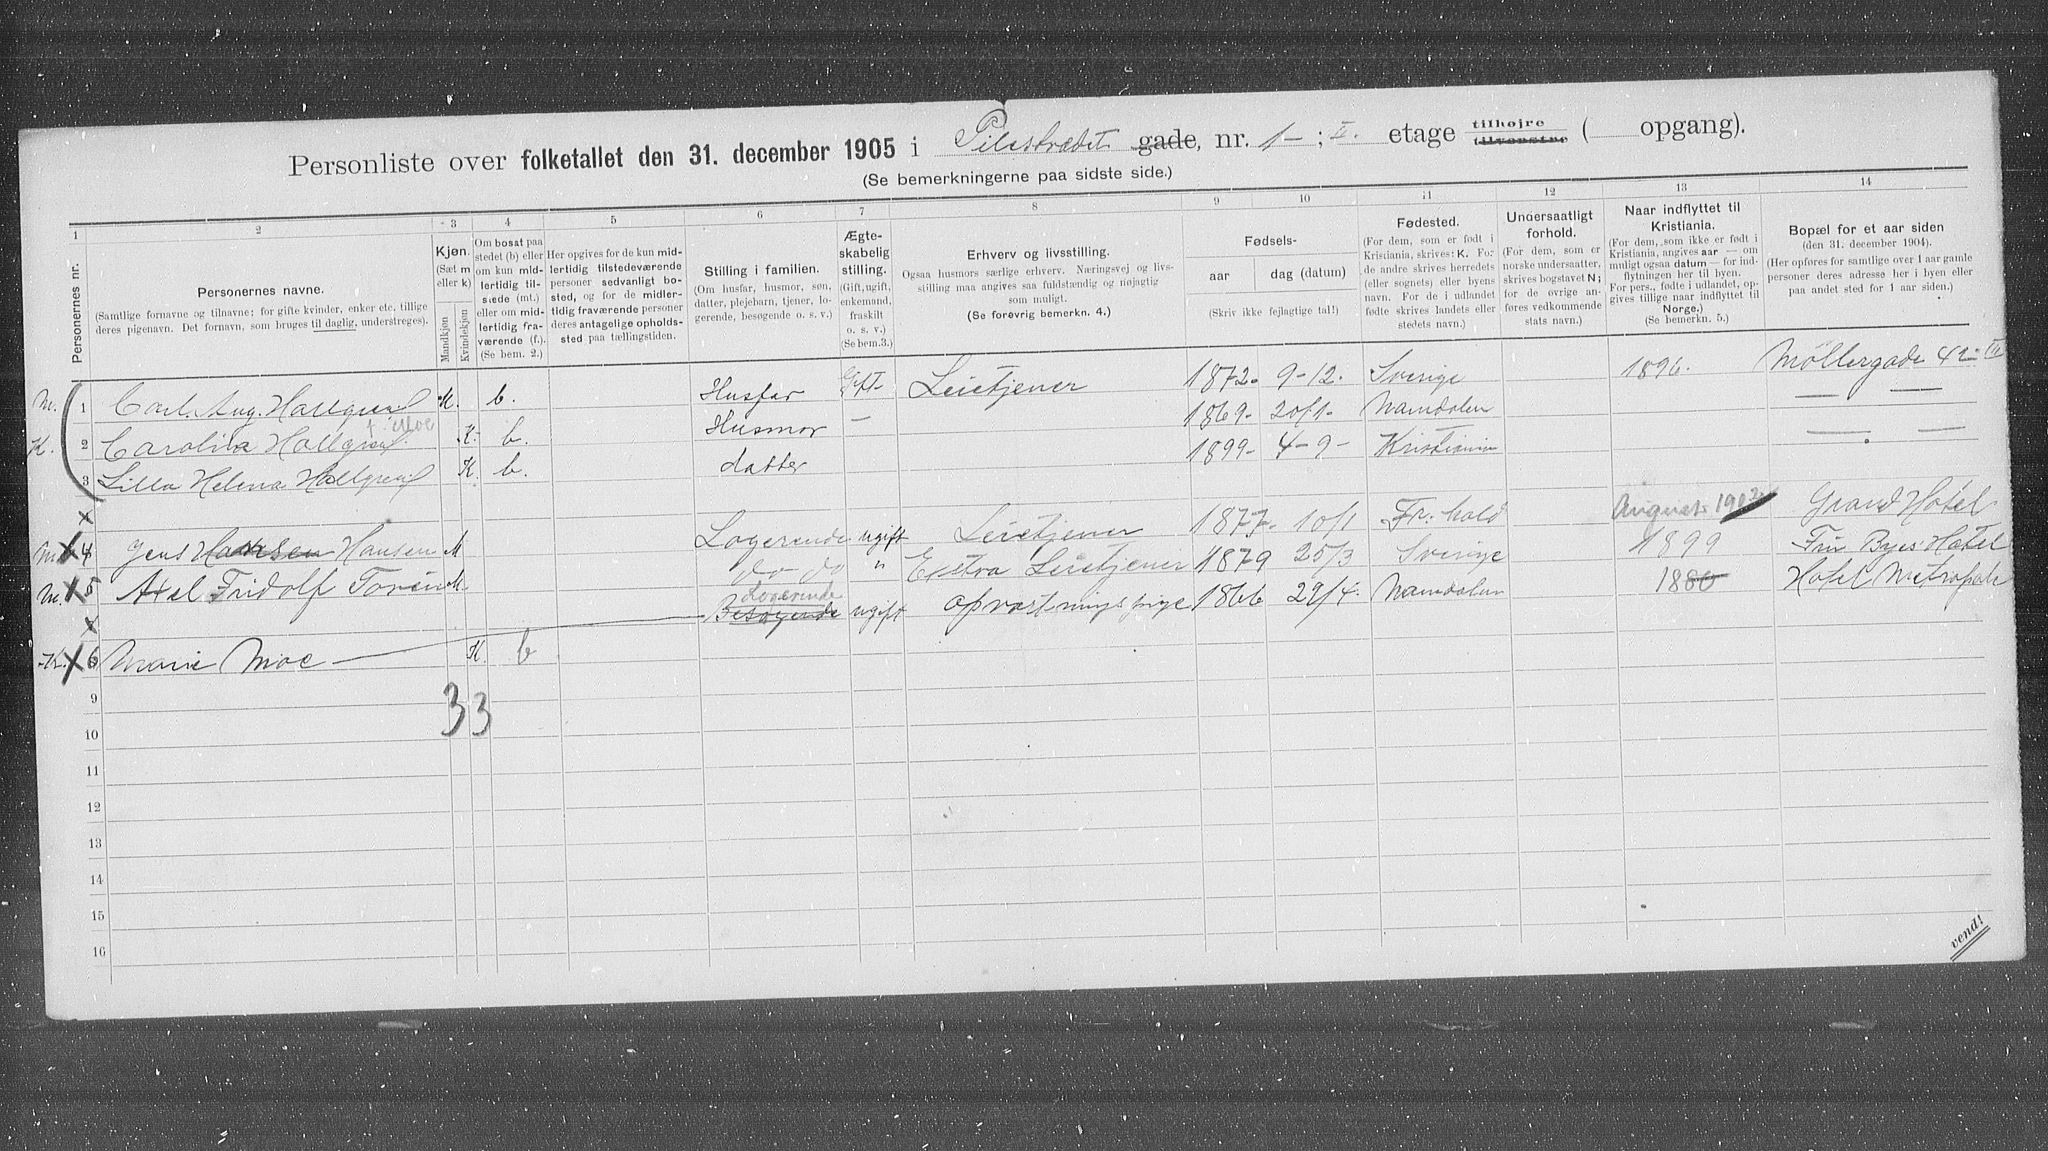 Personliste over folketallet den 31. december 1905 i Pilestrædet gade, nr. 1- ; II. etage tilhøjre tilvenstre ( opgang).
(Se bemerkningerne paa sidste side.)
1 2 3 4 5 6 7 8 9 10 11 12 13 14
Personernes nr.
Personernes navne.
(Samtlige fornavne og tilnavne; for gifte kvinder, enker etc, tillige
deres pigenavn. Det fornavn, som bruges til daglig, understreges).
Kjøn.
(Sæt m
eller k)
Mandkjøn
Kvindekjøn
Om bosat paa
stedet (b) eller
om kun mid-
lertidig til-
stede (mt.)
eller om mid-
lertidig fra-
værende (f.).
(Se bem. 2.)
Her opgives for de kun mid-
lertidig tilstedeværende
personer sedvanlig bo-
sted, og for de midler-
tidig fraværende personer
deres antagelige opholds-
sted paa tællingstiden.
Stilling i familien.
(Om husfar, husmor, søn,
datter, plejebarn, tjener, lo-
gerende, besøgende o. s. v.)
Ægte-
skabelig
stilling.
(Gift, ugift,
enkemand,
fraskilt
o. s. v.)
(Se bem.3.)
Erhverv og livsstilling.
Ogsaa husmors særlige erhverv. Næringsvej og livs-
stilling maa angives saa fuldstændig og nøjagtig
som muligt.
(Se forøvrig bemerkn. 4.)
Fødsels-
aar dag (datum)
(Skriv ikke fejlagtige tal!)
Fødested.
(For dem, som er født i
Kristiania, skrives: K. For
de andre skrives herredets
(eller sognets) eller byens
navn. For de i udlandet
fødte skrives landets eller
stedets navn.)
Undersaatligt
forhold.
(For dem, som er
norske undersaatter,
skrives bogstavet N;
for de øvrige an-
føres vedkommende
stats navn.)
Naar indflyttet til
Kristiania.
(For dem, som ikke er født i
Kristiania, angives aar — om
muligt ogsaa datum — for ind-
flytningen her til byen.
For pers., fødte i udlandet, op-
gives tillige naar indflyttet til
Norge.)
(Se bemerkn. 5.)
Bopæl for et aar siden
(den 31. december 1904).
(Her opføres for samtlige over 1 aar gamle
personer deres adresse her i byen eller
paa andet sted for 1 aar siden.)
M. 1 Carl. Aug. Hallgren M. b. Husfar Gift- Leietjener 1872- 9-12. Sverige 1896. Möllergade 42 III
f. Moe
K. 2 Carolina Hallgren K. b. Husmor — 1869- 20/1- Namdalen — —
3 Lilla Helena Hallgren K b. datter 1899- 4-9- Kristiania — —
x
M. x 4 Jens Hansen Hansen M Logerende ugift Leietjener 1877- 10/1 Fr: hald August 1902 Grand Hotel
M. x 5 Axel Fridolf Torén M. do do " Extra Leietjener 1879 25/3 Sverige 1899 Byes Hotel
Logerende
x
K. x 6 Marie Moe — K. b Besøgende ugift opvartningspige 1866 29/4. Namdalen 1880 Hotel Metropole
3 3
9
10
11
12
13
14
15
16
vend!